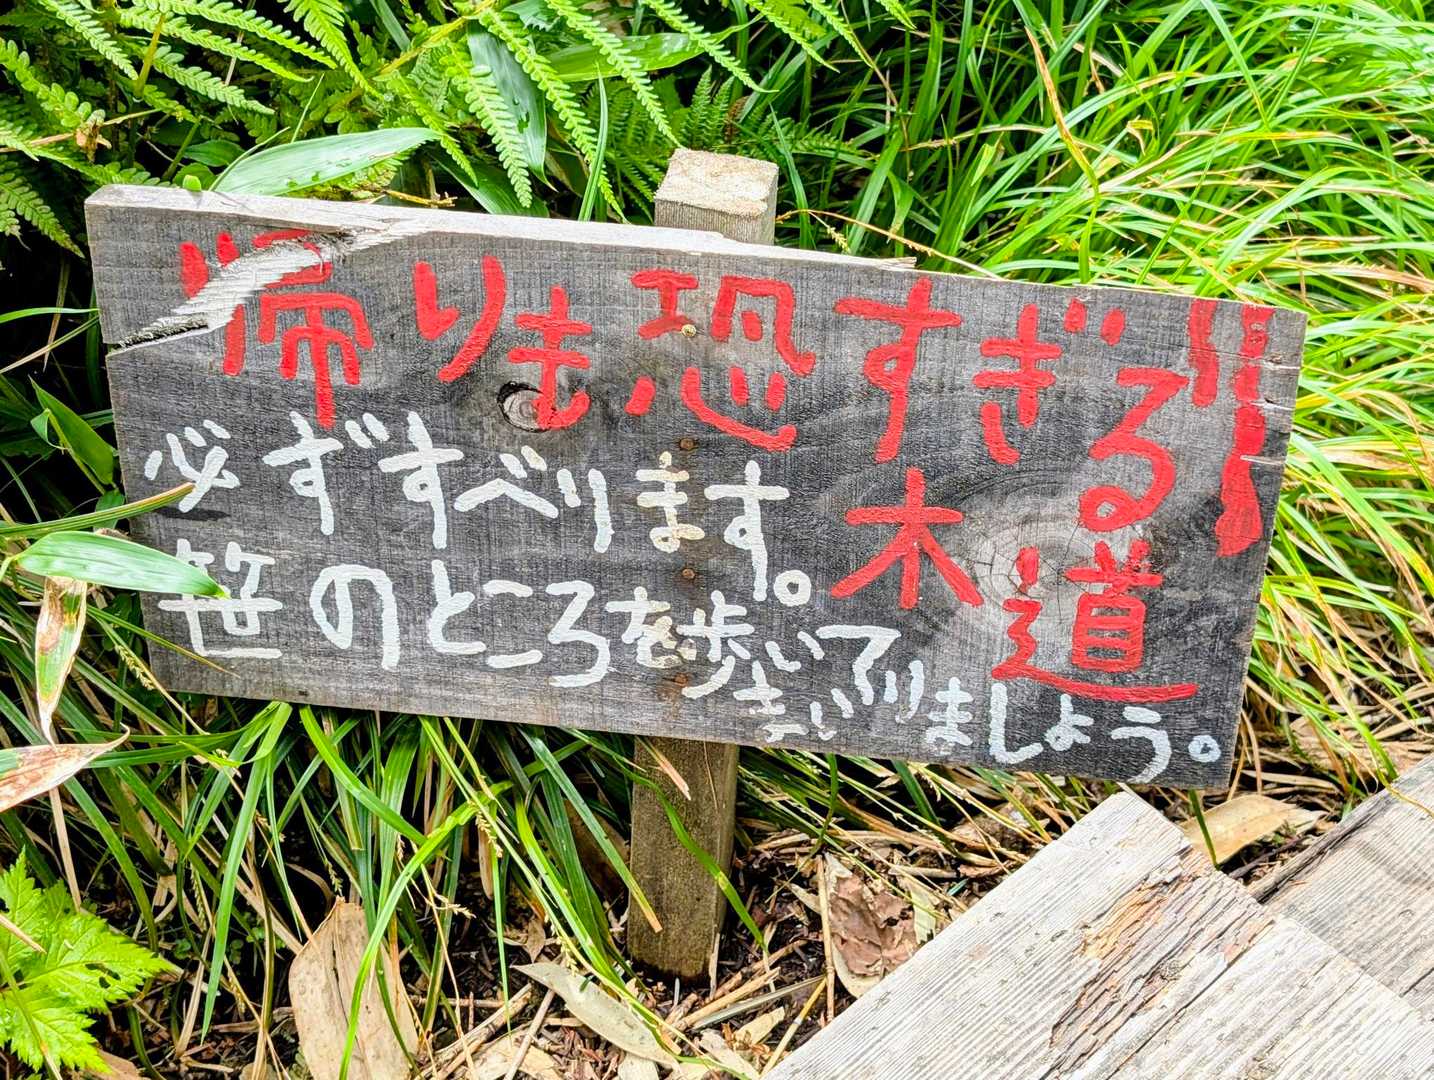 帰りも恐すぎる
木道
必ずすべります。
笹のところを歩いて
まいりましょう。